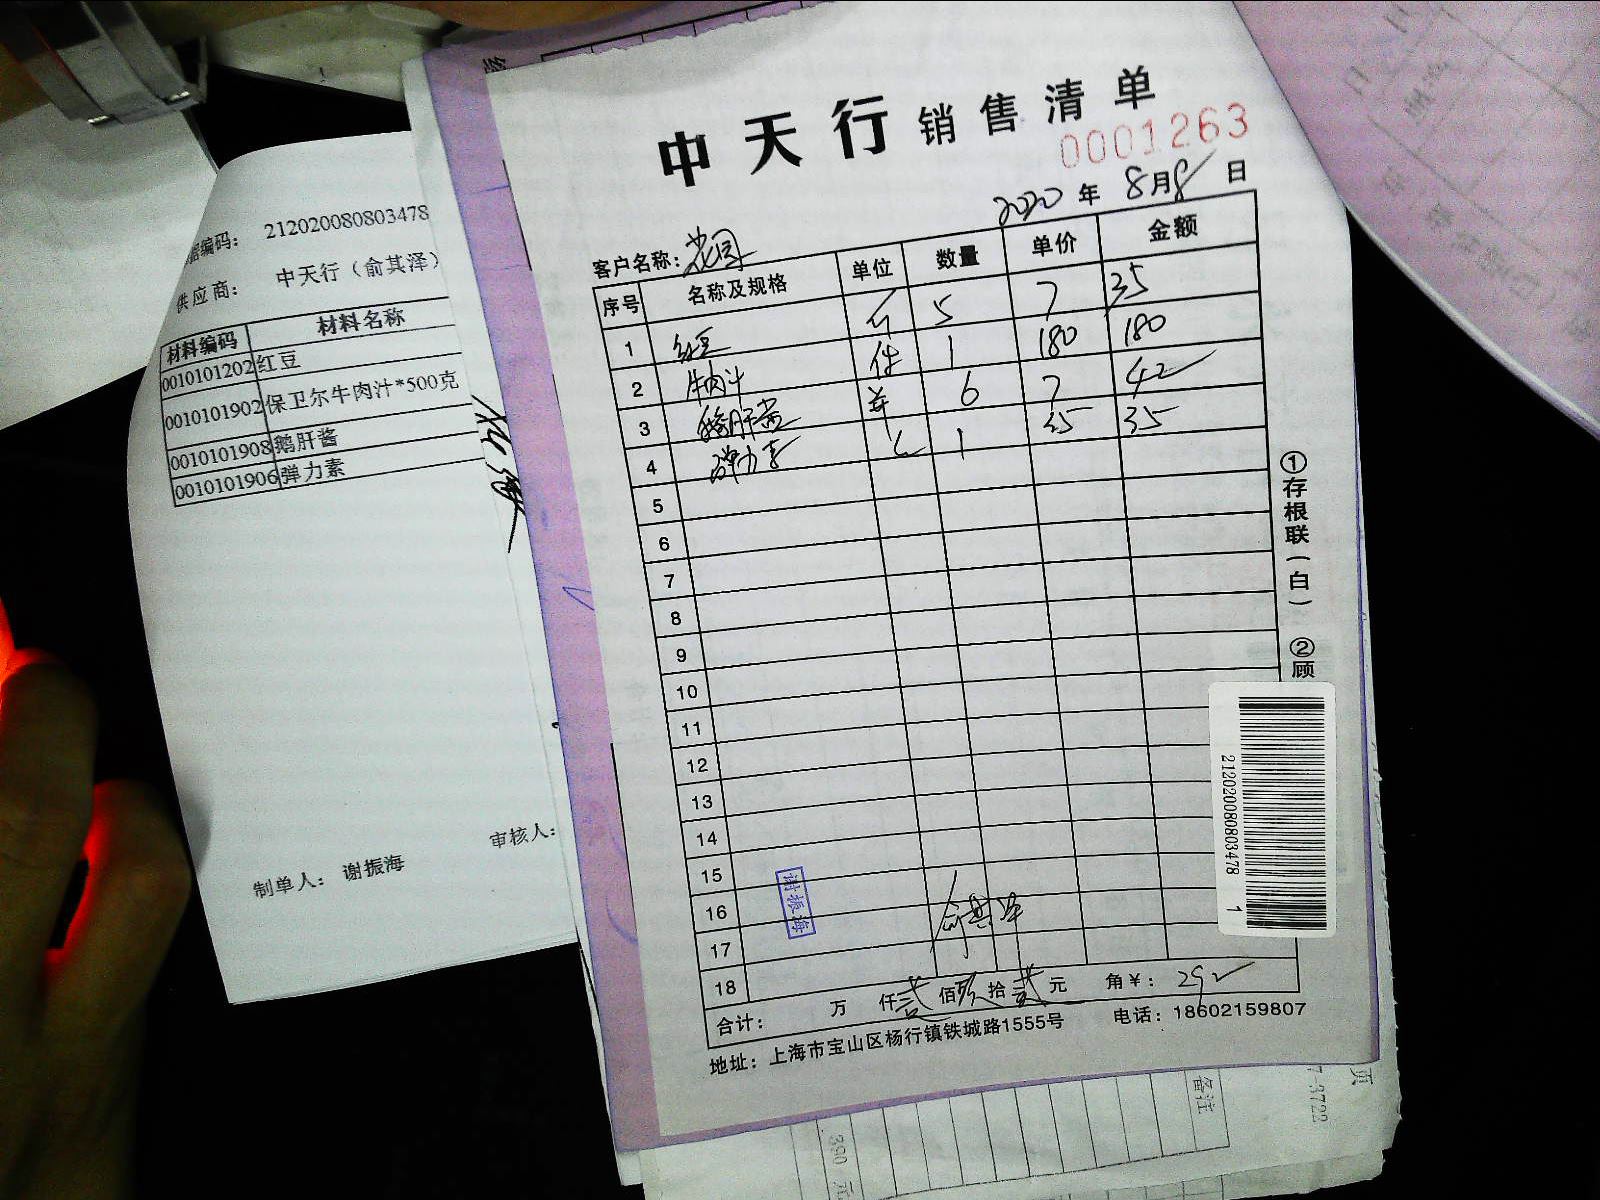 中天行销售清单
0001263
2020年8月8日
客户名称：
序号 名称及规格 单位 数量 单价 金额
1 红豆 斤 5 7 35
2 牛肉汁 件 1 180 180
3 鹅肝酱 6 7 42
4 弹力素 1 35 35
5
6
7
8
9
10
11
12
13
14
15
16
17
18
谢振海
俞其泽
合计： 万 仟贰佰玖拾贰元 角¥：292
地址：上海市宝山区杨行镇铁城路1555号 电话：18602159807
①存根联(白) ②顾
212020080803478 1
编码： 212020080803478
供应商： 中天行（俞其泽）
材料编码 材料名称
0010101202 红豆
0010101902 保卫尔牛肉汁*500克
0010101908 鹅肝酱
0010101906 弹力素
制单人： 谢振海 审核人：
备注
390 元
页
7-3722